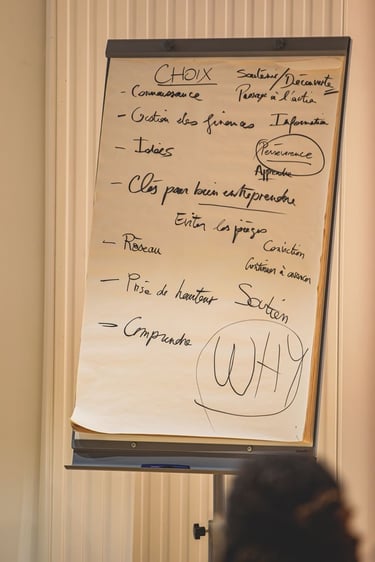 CHOIX Soutenir/Découverte
- Connaissance Passage à l'action
- Gestion des finances Information
- Idées Persévérence
Approche
- Clés pour bien entreprendre
Eviter les pièges
- Réseau Conviction
Continuer à avancer
- Prise de hauteur Soutien
- Comprendre WHY